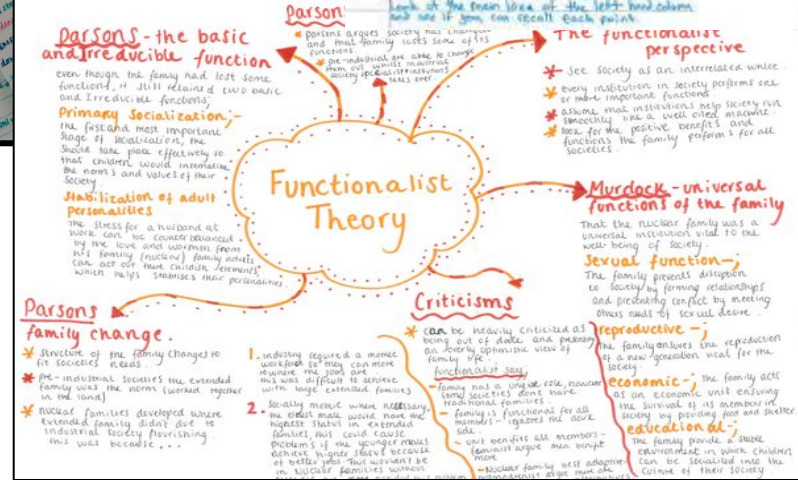 Look at the main idea of the left hand column
and see if you can recall each point.
Parson
* parsons argues society has
and that family loses some of its
functions.
* pre-industrial are able to
them out whilst industrial
society specialist institutions
takes over.
Parsons - the basic
and Irreducible function
even though the family had lost some
functions, it still retained two basic
and Irreducible functions;
Primary Socialization;-
The first and most important
stage of socialization, the
should take place effectively so
that children would internalise
the norms and values of their
society
Stabilization of adult
personalities
The stress for a husband at
work can be counterbalanced
by the love and warmth from
his family (nuclear) family adults
can act out there childish elements,
which helps stabilises their personalities.
The functionalist
perspective
* See society as an interrelated whole
* every institution in society performs one
or more important functions.
* assume that institutions help society run
smoothly like a well oiled machine.
* look for the positive benefits and
functions the family performs for all
societies.
Functionalist
Theory
Murdock - universal
functions of the family
That the nuclear family was a
universal institution vital to the
well-being of society.
Sexual function -;
The family prevents disruption
to society by forming relationships
and preventing conflict by meeting
others needs of sexual desire.
reproductive -;
The family ensures the reproduction
of a new generation vital for the
society.
economic -; The family acts
as an economic unit ensuring
the survival of its members in
society by providing food and shelter.
educational -;
The family provide a stable
environment in which children
can be socialized into the
culture of their society.
Parsons
family change.
* structure of the family changes to
fit societies needs.
* pre-industrial societies the extended
family was the norm (worked together
in the land)
* nuclear families developed where
extended family didn't due to
industrial society flourishing
this was because...
1. industry required a mobile
workforce so they can move
to where the jobs are
this was difficult to achieve
with large extended families
2. Socially mobile where necessary,
the eldest male would have the
highest status in extended
families, this could cause
problems if the younger males
achieve higher status because
of better jobs. This wouldn't be
in nuclear families without
Criticisms
* can be heavily criticized as
being out of date and presenting
an overly optimistic view of
family life.
functionalist say,
- family has a unique role, however
some societies don't have
traditional families.
- family is functional for all
members - ignores the dark
side.
- unit benefits all members -
feminist argue men benefit
more
- Nuclear family best adaptive-
postmodernist argue there are